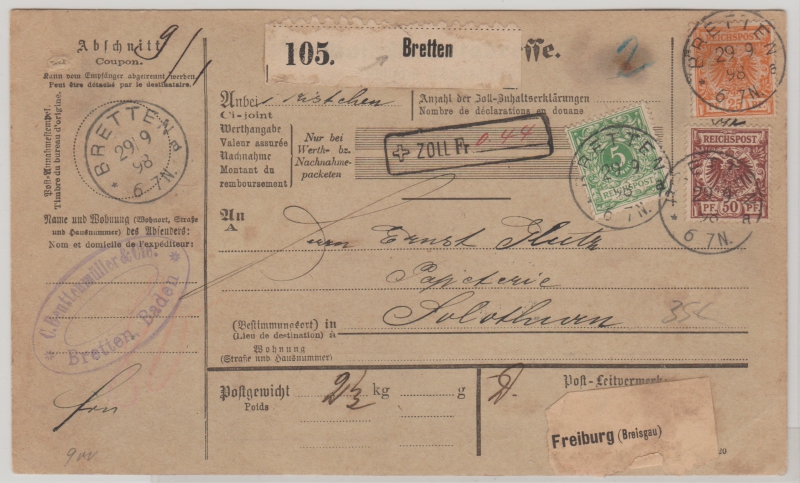 Abschnitt
Coupon.
Kann vom Empfänger abgetrennt werden.
Peut être détaché par le destinataire.
9/1
Post-Annahmestempel.
Timbre du bureau d'origine.
BRETTEN
29 9
98
6-7N.
Name und Wohnung (Wohnort, Straße
und Hausnummer) des Absenders:
Nom et domicile de l'expéditeur:
Bretten, Baden
105. Bretten
sse.
2
Anbei 1 Kistchen
Ci-joint
Anzahl der Zoll-Inhaltserklärungen
Nombre de déclarations en douane
Werthangabe
Valeur assurée
Nachnahme
Montant du
remboursement
Nur bei
Werth- bz.
Nachnahme-
packeten
ZOLL Fr 0.44
An
A
Herrn Ernst
Papeterie
Solothurn
354
(Bestimmungsort) in
(Lieu de destination) à
Wohnung
(Straße und Hausnummer)
Postgewicht
Poids
2½ kg g
D.
Post-Leitvermerk
Freiburg (Breisgau)
20
BRETTEN
29 9
98
6-7N.
REICHSPOST
25 PF
REICHSPOST
PF. 50 PF.
5
REICHSPOST
BRETTEN
29 9
98
6-7N.
29 9
98
6 7N.